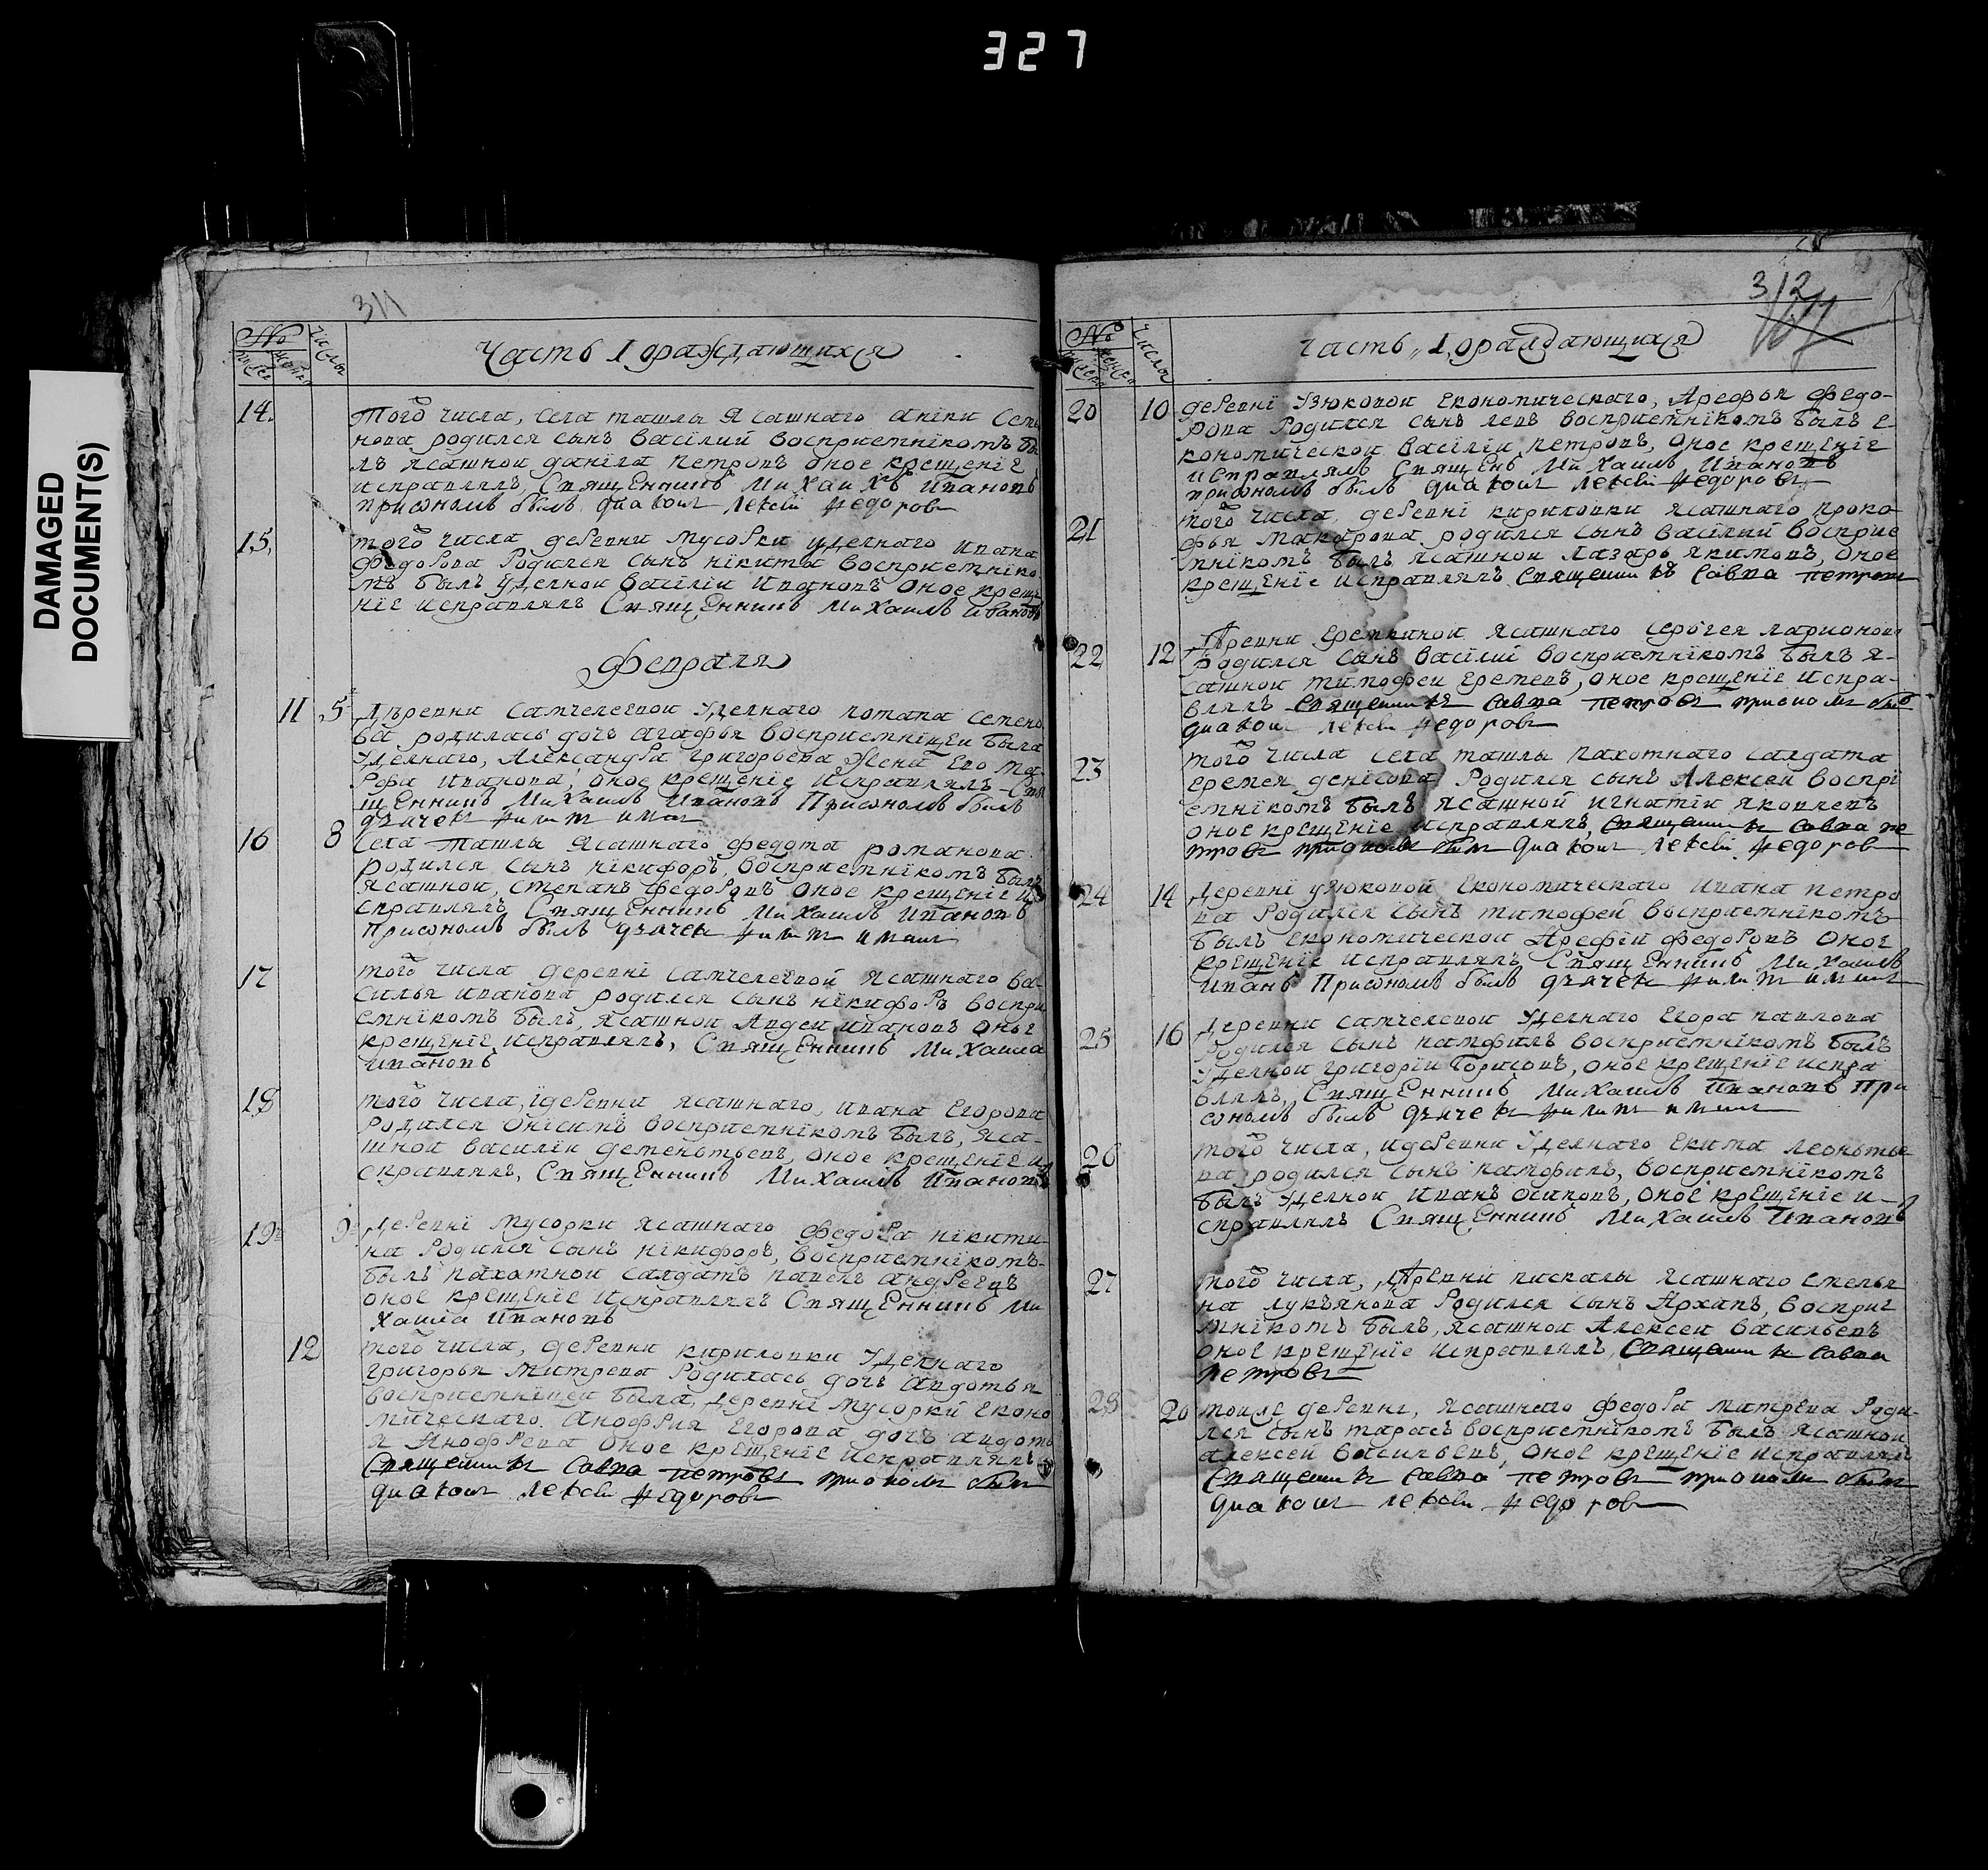 327
DAMAGED
DOCUMENT(S)
311
№
Числы
Часть 1 ораждающихся
14.
Того числа, села ташлы Ясашнаго аники Семе
нова родился сынъ Василий Восприемнікомъ бы
лъ Ясашной данила Петровъ Оное крещеніе
исправлялъ, Священникъ Михаилъ Ивановъ
присономъ былъ диаконъ лексей федоровъ
15.
того числа деревни мусорки уделнаго ивана
Федорова Родился Сынъ нікита Восприемніко
мъ былъ уделной Василіи Ивановъ Оное креще
ніе исправлялъ Священникъ Михаилъ Ивановъ
Февраля
11 5
Дѣревни Самчелеевой Уделнаго потапа семено
ва родилась дочь агафья Восприемніцеи была
Уделнаго, Александра григорьева жена Ево ма
рфа иванова, оное крещеніе исправлялъ Свя
щенникъ Михаилъ Ивановъ Присономъ былъ
дьячекъ
16 8
Села Ташлы Ясашнаго федота романова
родился сынъ нікифоръ, восприемнікомъ былъ
Ясашной, степанъ федоровъ Оное крещеніе и
справлялъ Священникъ Михаилъ Ивановъ
Присономъ былъ дьячекъ
17
того числа деревні самчелеевой Ясашнаго Ва
силья иванова родился сынъ нікифоръ воспри
емнікомъ былъ, ясашной Авдеи ивановъ Оное
крещеніе исправлялъ, Священникъ Михаила
Ивановъ
18
того числа, ідеревни ясашнаго, ивана Егорова
родился Онісимъ восприемнікомъ былъ, яса-
шной василіи дементьевъ, оное крещеніе и
справлялъ, Священникъ Михаилъ Ивановъ
19 9
Деревні мусорки ясашнаго Федора никити
на Родился сынъ нікифоръ, восприемнікомъ
былъ пахатной салдатъ павелъ андреевъ
оное крещеніе исправлялъ Священникъ Ми
хаила Ивановъ
12
того числа, деревни кириловки Уделнаго
григорья митрева Родилась дочь авдотья
восприемніцеи была, деревні мусоркй Еконо
мическаго. анофрия Егорова дочь авдоть
я Анофрева оное крещеніе исправлялъ
Священникъ Савва петровъ присномъ былъ
диаконъ лексей федоровъ
312
№
Числы
Часть, 1, ораждающихся
20 10
деревні Узюковой Економическаго, Арефья федо-
рова Родился сынъ левъ восприемнікомъ былъ е
кономической Василіи петровъ, Оное крещеніе
исправлялъ Священъ Михаилъ Ивановъ
присономъ былъ диаконъ лексей федоровъ
21
того числа, деревні кириловки ясашнаго проко
фья макарова родился сынъ василий восприе
мнікомъ былъ ясашной лазарь якимовъ, оное
крещеніе исправлялъ Священникъ Савва петровъ
22 12
Дѣревни Еремкиной ясашнаго сергея ларионова
родился сынъ василий восприемнікомъ былъ я-
сашной тимофеи еремеевъ, оное крещеніе испра-
влялъ Священникъ Савва петровъ присномъ былъ
диаконъ лексей федоровъ
23
того числа села ташлы пахотнаго салдата
еремея денісова Родился сынъ Алексеи воспрі
емнікомъ былъ ясашной игнатіи яковлевъ
оное крещеніе исправлялъ, Священникъ Савва пе
тровъ присномъ былъ диаконъ лексей федоровъ
24 14
Деревні узюковой Економическаго ивана петро
ва Родился сынъ тимофей восприемнікомъ
былъ економической Арефіи федоровъ Оное
крещеніе исправлялъ Священникъ Михаилъ
Иванъ Присономъ былъ дьячекъ
25 16
Деревни самчелевои Уделнаго Егора павлова
Родился сынъ памфилъ восприемнікомъ былъ
Уделной григории борисовъ, оное крещеніе испра
влялъ, Священникъ Михаилъ Ивановъ При
сономъ былъ дьячекъ
26
того числа, идеревни Уделнаго Екима леонтье
ва родился сынъ памфилъ, восприемнікомъ
былъ уделной иванъ осиповъ, оное крещеніе и-
справлялъ Священникъ Михаилъ Ивановъ
27
того числа, Дѣревни пискалы ясашнаго емелья
на лукъянова Родился сынъ Архипъ, восприе
мнікомъ былъ, ясашной Алексеи васильевъ
оное крещеніе исправлялъ, Священникъ Савва
петровъ
28 20
тоиже деревни, ясашнаго федора митрева Роди-
лся сынъ тарасъ восприемнікомъ былъ ясашной
алексей васильевъ, оное крещеніе исправлялъ
Священникъ Савва петровъ присномъ былъ
диаконъ лексей федоровъ